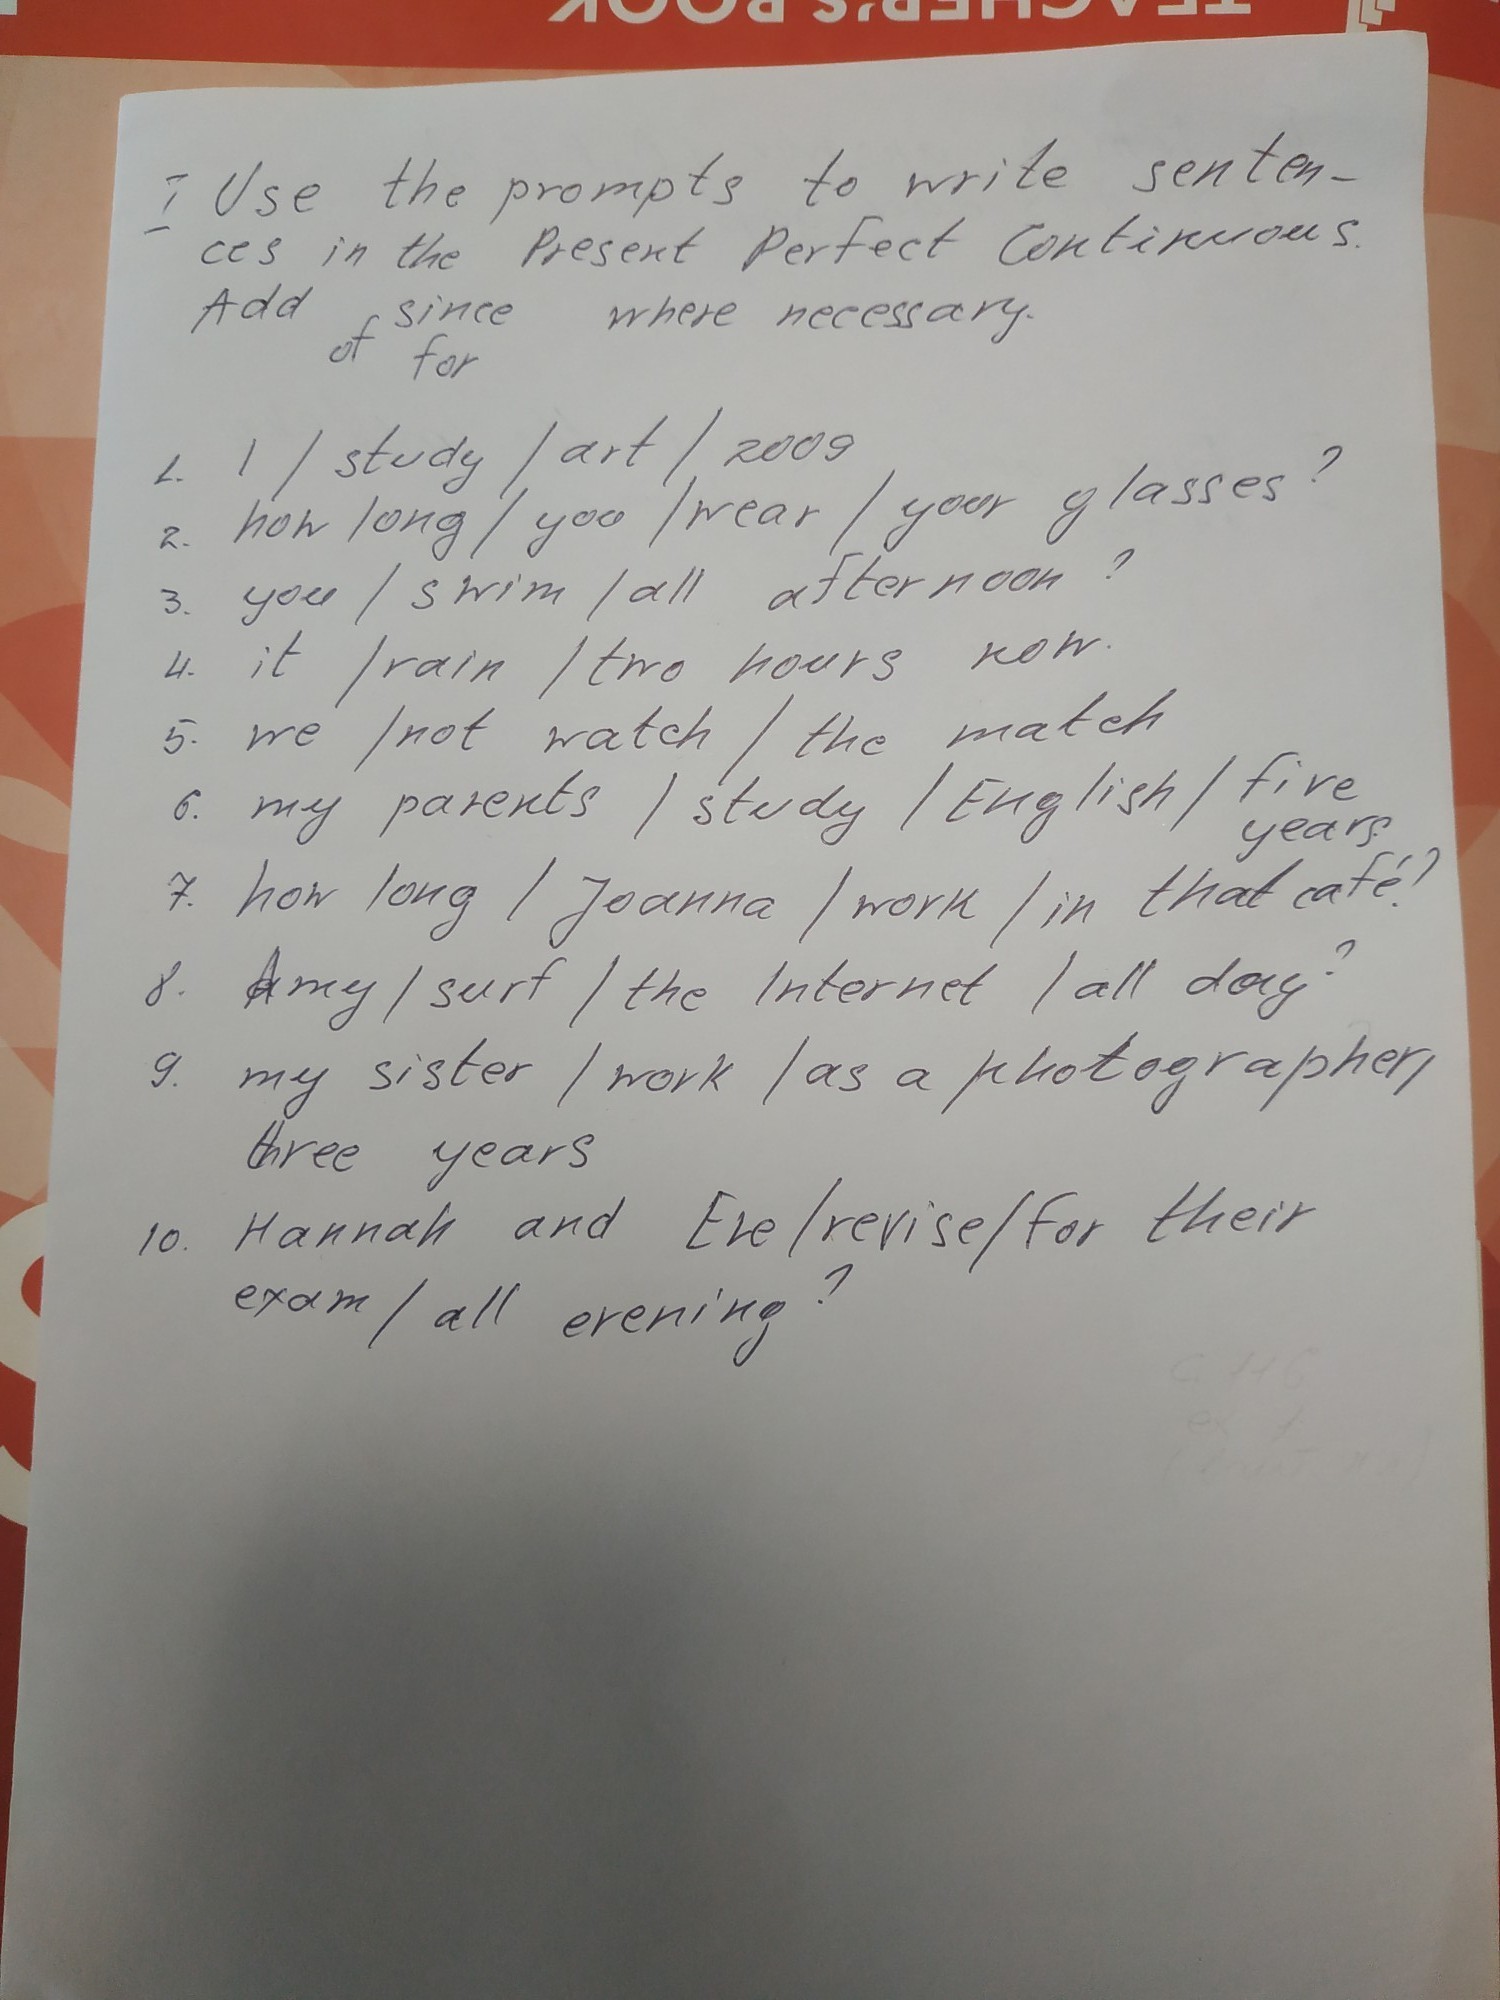 TEACHER'S BOOK
I Use the prompts to write senten-
ces in the Present Perfect Continuous.
Add since where necessary.
of for
1. I / study / art / 2009
2. how long / you / wear / your glasses?
3. you / swim / all afternoon?
4. it / rain / two hours now.
5. we / not watch / the match
6. my parents / study / English / five
years
7. how long / Joanna / work / in that café?
8. Amy / surf / the Internet / all day?
9. my sister / work / as a photographer /
three years
10. Hannah and Eve / revise / for their
exam / all evening?